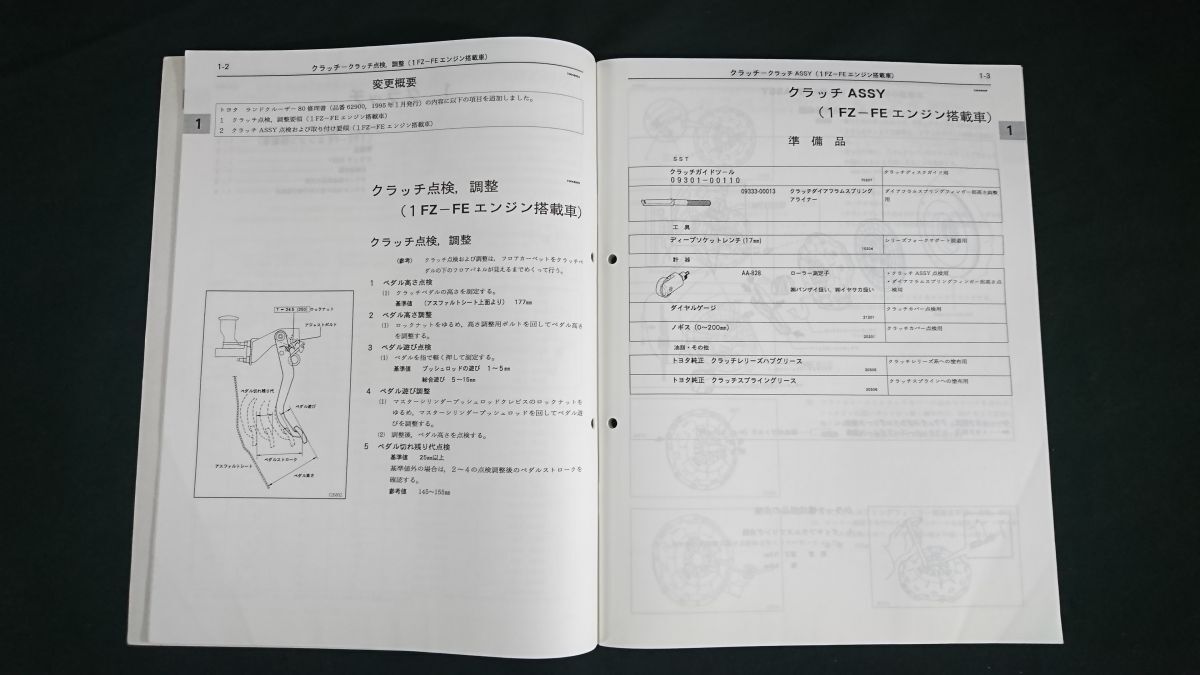 1-2
クラッチークラッチ点検，調整（1FZ－FEエンジン搭載車）
変更概要
トヨタ ランドクルーザー80修理書（品番62900，1995年1月発行）の内容に以下の項目を追加しました。
1 クラッチ点検，調整要領（1FZ－FEエンジン搭載車）
2 クラッチASSY点検および取り付け要領（1FZ－FEエンジン搭載車）
1
クラッチ点検，調整
（1FZ－FEエンジン搭載車）
クラッチ点検，調整
（参考） クラッチ点検および調整は，フロアカーペットをクラッチペ
ダルの下のフロアパネルが見えるまでめくって行う。
1 ペダル高さ点検
(1) クラッチペダルの高さを測定する。
基準値 （アスファルトシート上面より） 177㎜
2 ペダル高さ調整
(1) ロックナットをゆるめ，高さ調整用ボルトを回してペダル高さ
を調整する。
3 ペダル遊び点検
(1) ペダルを指で軽く押して測定する。
基準値 プッシュロッドの遊び 1～5㎜
総合遊び 5～15㎜
4 ペダル遊び調整
(1) マスターシリンダープッシュロッドクレビスのロックナットを
ゆるめ，マスターシリンダープッシュロッドを回してペダル遊
びを調整する。
(2) 調整後，ペダル高さを点検する。
5 ペダル切れ残り代点検
基準値 25㎜以上
基準値外の場合は，2～4の点検調整後のペダルストロークを
確認する。
参考値 145～155㎜
ロックナット
アジャストボルト
ペダル切れ残り代
ペダル遊び
ペダルストローク
アスファルトシート
ペダル高さ
クラッチークラッチASSY（1FZ－FEエンジン搭載車）
1-3
クラッチASSY
（1FZ－FEエンジン搭載車）
1
準備品
SST
クラッチガイドツール
09301-00110
クラッチディスクガイド用
09333-00013 クラッチダイアフラムスプリング
アライナー
ダイアフラムスプリングフィンガー部高さ調整
用
工具
ディープソケットレンチ(17㎜)
レリーズフォークサポート脱着用
計器
AA-828 ローラー測定子
㈱バンザイ扱い，㈱イヤサカ扱い
・クラッチASSY点検用
・ダイアフラムスプリングフィンガー部高さ点
検用
ダイヤルゲージ
クラッチカバー点検用
ノギス（0～200㎜）
クラッチカバー点検用
油脂・その他
トヨタ純正 クラッチレリーズハブグリース
クラッチレリーズ系への塗布用
トヨタ純正 クラッチスプライングリース
クラッチスプラインへの塗布用